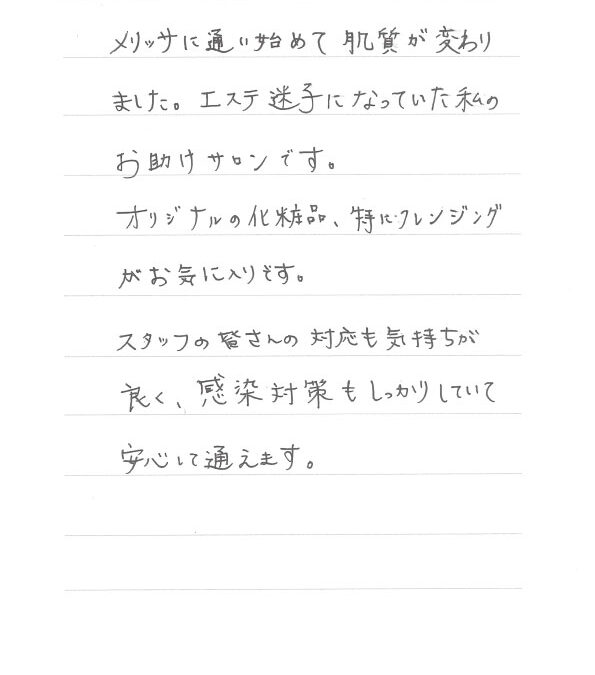 メリッサに通い始めて肌質が変わり
ました。エステ迷子になっていた私の
お助けサロンです。
オリジナルの化粧品、特にクレンジング
がお気に入りです。
スタッフの皆さんの対応も気持ちが
良く、感染対策もしっかりしていて
安心して通えます。